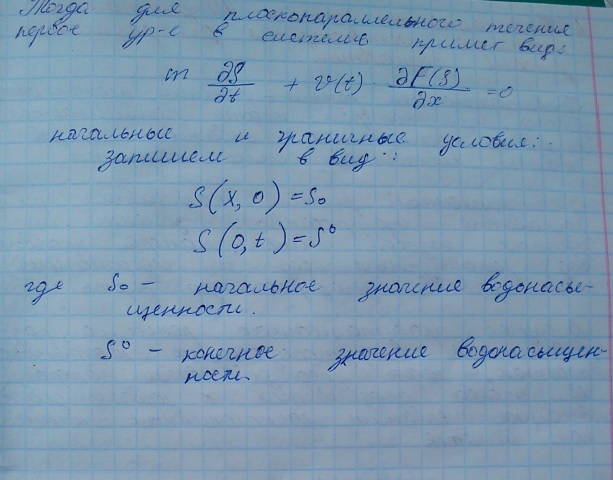 Тогда для плоскопараллельного течения
первое ур-е в системе примет вид:
m ∂S/∂t + v(t) · ∂F(S)/∂x = 0
начальные и граничные условия:
запишем в вид:
S(x, 0) = S₀
S(0, t) = S⁰
где S₀ – начальное значение водонасы-
щенности.
S⁰ – конечное значение водонасыщен-
ности.